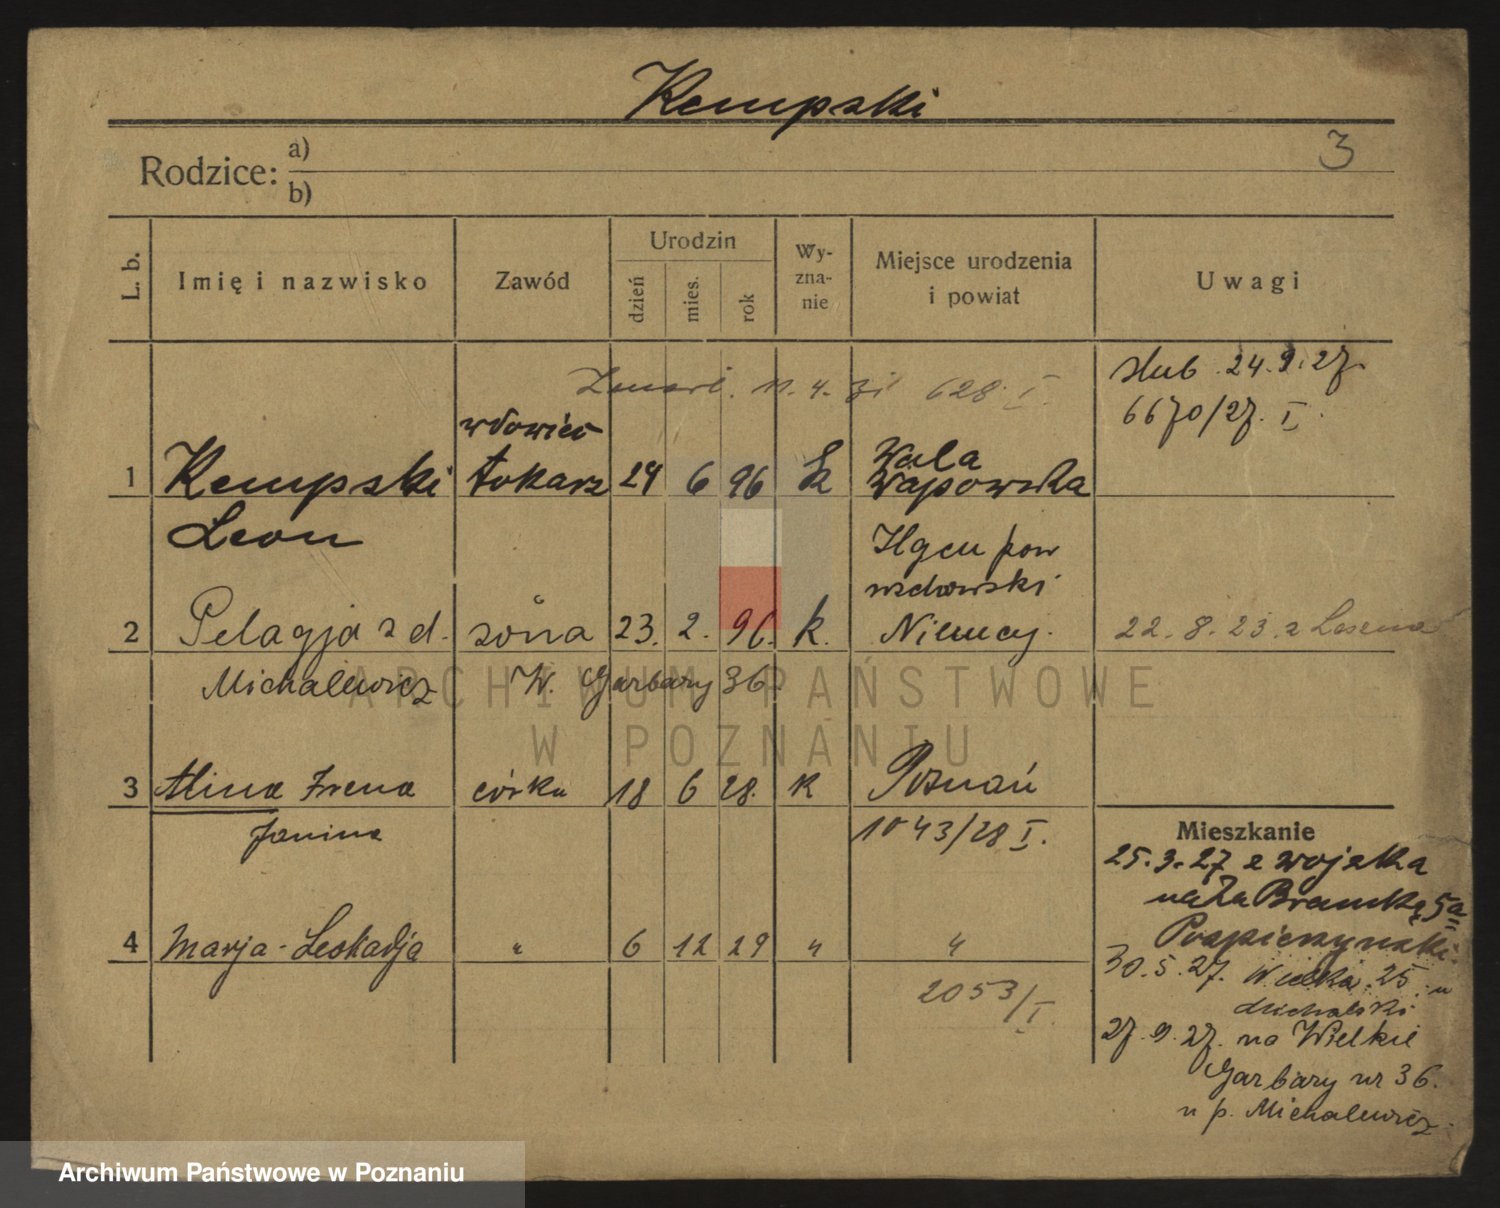 Kempski
3
Rodzice: a)
b)
L. b.
Imię i nazwisko
Zawód
Urodzin
dzień
mies.
rok
Wy-
zna-
nie
Miejsce urodzenia
i powiat
Uwagi
Zmarł. 11. 4. 31 628. I.
ślub 24. 9. 27.
6670/27. I.
wdowiec
1 Kempski tokarz 24 6 96 k Wola
Wapowska
Leon
Ilgen pow
wschowski
2 Pelagja z d. żona 23. 2. 96. k. Niemcy. 22. 8. 23. z Leszna
Michalewicz W. Garbary 36.
3 Alina Irena córka 18 6 28. k Poznań
Janina 1043/28 I.
Mieszkanie
25. 3. 27 z wojska
na Za Bramką 5a
4 Marja-Leokadja " 6 12 29 " "
30. 5. 27. Wielka 25. u
2053/I.
Michalski
27. 9. 27. na Wielkie
Garbary nr 36.
u p. Michalewicz.
ARCHIWUM PAŃSTWOWE
W POZNANIU
Archiwum Państwowe w Poznaniu